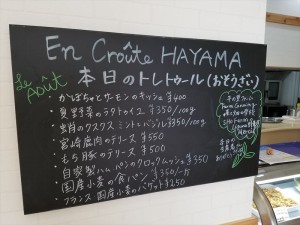 En Croûte HAYAMA
Le Août
本日のトレトゥール(おそうざい)
・かぼちゃとサーモンのキッシュ ¥400
・夏野菜のラタトゥイユ ¥350/100g
・蛸のクスクス ミントとパンプルムース ¥350/100g
・宮崎鹿肉のテリーヌ ¥550
・もち豚のテリーヌ ¥500
・自家製ハム パンのクロックムッシュ ¥350
・国産小麦の食パン ¥350/一斤
・フランス・国産小麦のバゲット ¥250